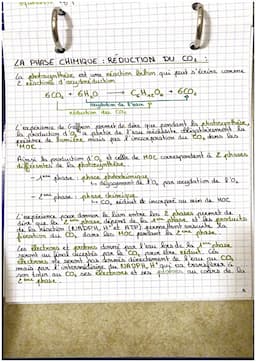 LA PHASE CHIMIQUE : RÉDUCTION DU CO₂
La photosynthèse est une réaction qui peut s'écrire comme
2 réactions d'oxydoréduction
6CO₂ + 6H₂O → C₆H₁₂O₆ + 6CO₂
oxydation de l'eau
réduction du CO₂
L'expérience de Gaffron permet de dire que pendant la photosynthèse,
la production d'O₂ à partir de l'eau nécessite obligatoirement la
présence de lumière mais pas l'incorporation des CO₂ dans les
MOC.
Ainsi la production d'O₂ et celle de MOC correspondent à 2 phases
différentes de la photosynthèse.
1ère phase : phase photochimique
↳ dégagement de l'O₂ par oxydation de l'O₂
2ème phase : phase chimique
↳ CO₂ réduit et incorporé au sein de MOC
L'expérience pour donner le lien entre les 2 phases permet de
dire que la 2ème phase dépend de la 1ère phase et les produits
de la réaction (NADPH, H⁺ et ATP) permettent ensuite la
fixation du CO₂ dans les MOC pendant la 2ème phase.
Les électrons et protons donnés par l'eau lors de la 1ère phase
seront au final acceptés par le CO₂ pour être réduit. Ces
électrons ne seront pas donnés directement de l'eau au CO₂
mais par l'intermédiaire du NADPH, H⁺ qui va transférer à
son tour au CO₂ ses électrons et ses protons au cours de la
2ème phase.